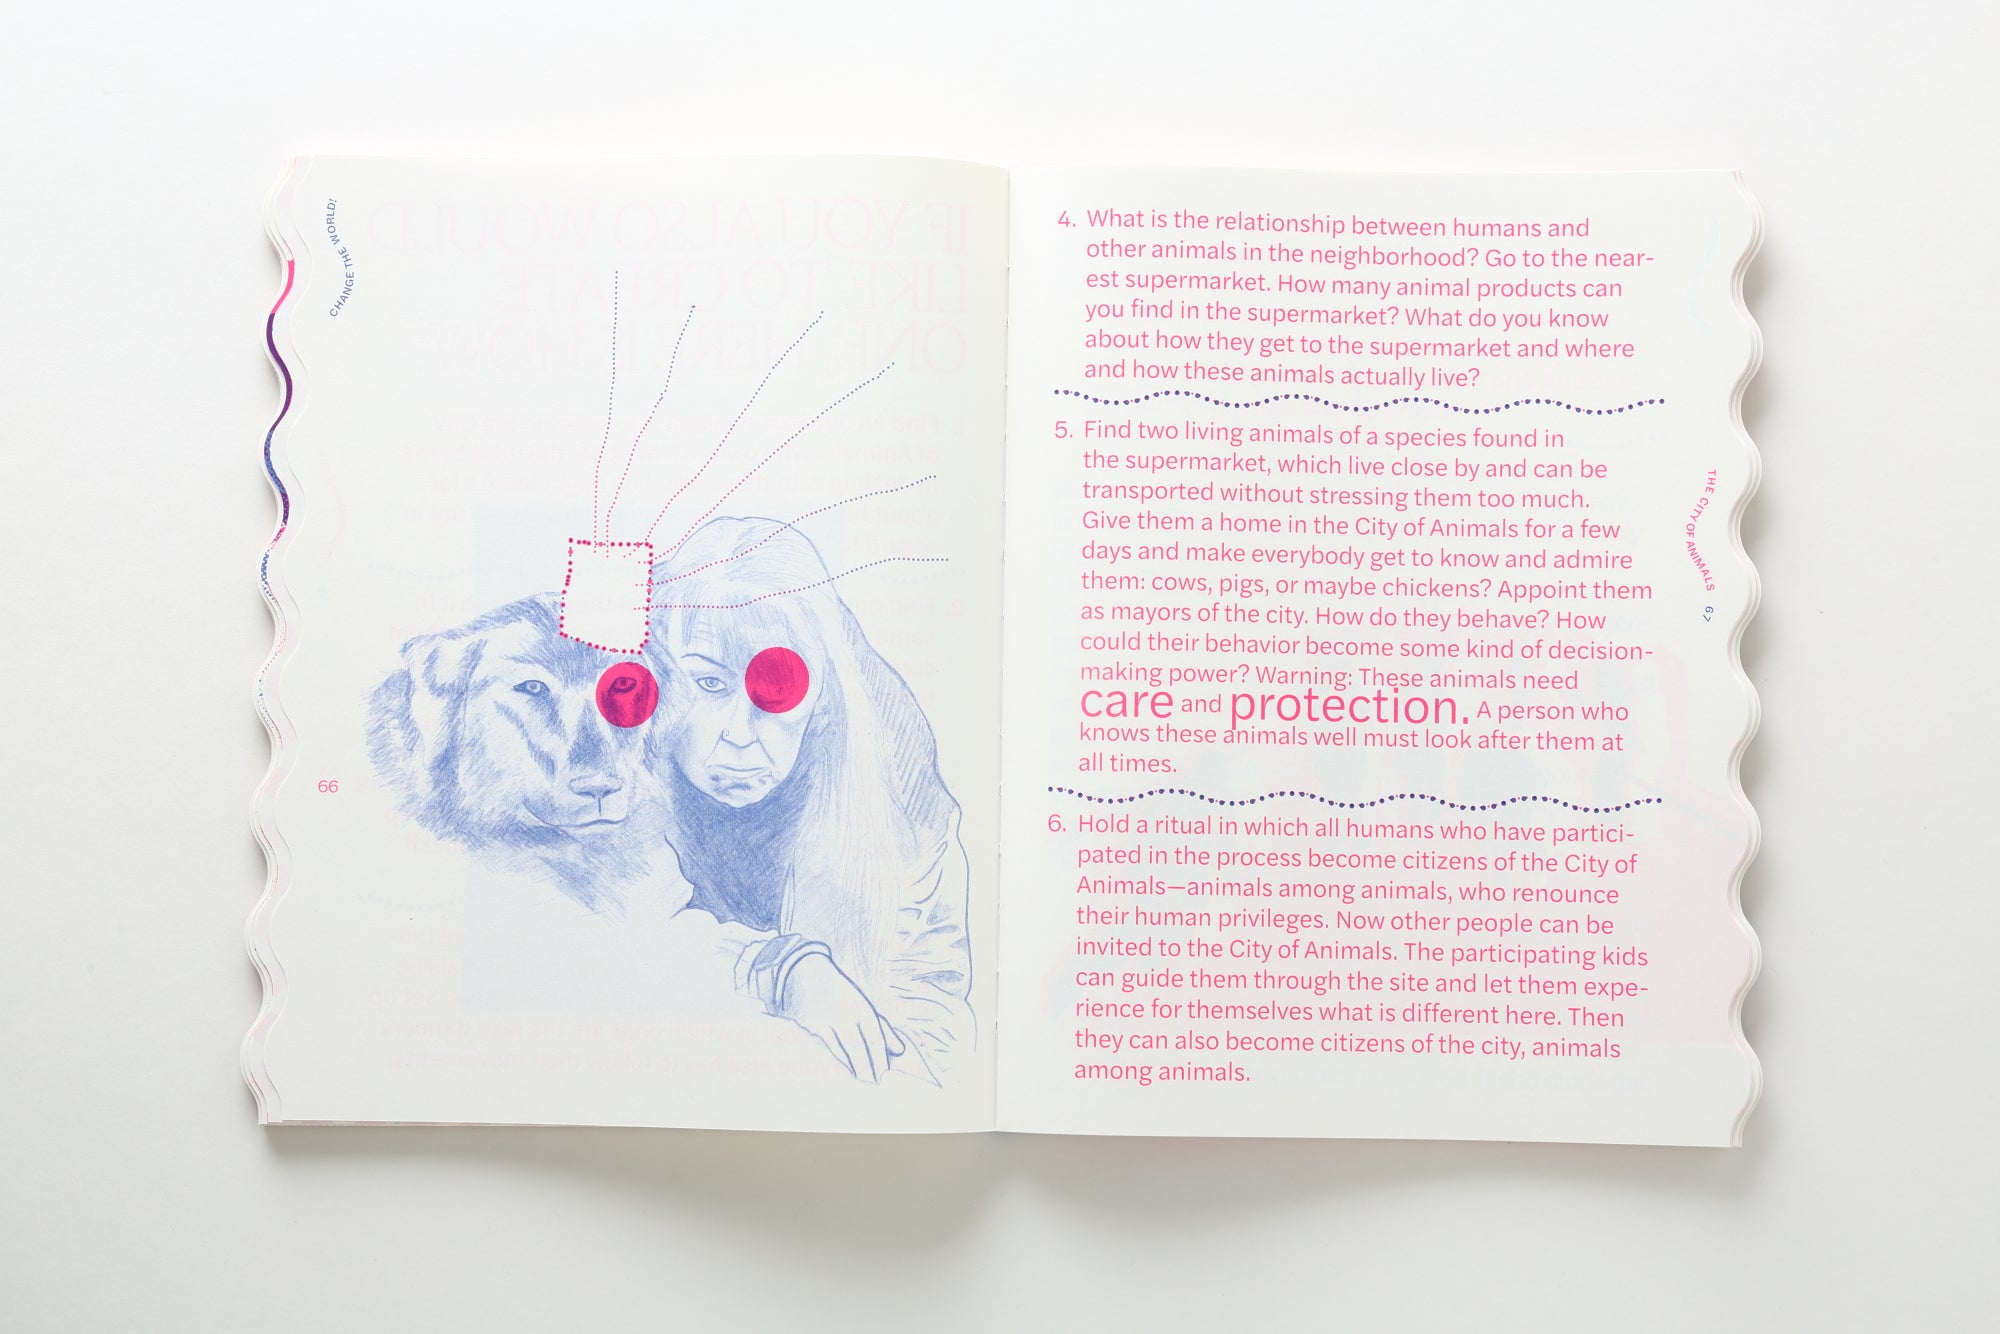 CHANGE THE WORLD!
66
4. What is the relationship between humans and
other animals in the neighborhood? Go to the near-
est supermarket. How many animal products can
you find in the supermarket? What do you know
about how they get to the supermarket and where
and how these animals actually live?
5. Find two living animals of a species found in
the supermarket, which live close by and can be
transported without stressing them too much.
Give them a home in the City of Animals for a few
days and make everybody get to know and admire
them: cows, pigs, or maybe chickens? Appoint them
as mayors of the city. How do they behave? How
could their behavior become some kind of decision-
making power? Warning: These animals need
care and protection. A person who
knows these animals well must look after them at
all times.
6. Hold a ritual in which all humans who have partici-
pated in the process become citizens of the City of
Animals—animals among animals, who renounce
their human privileges. Now other people can be
invited to the City of Animals. The participating kids
can guide them through the site and let them expe-
rience for themselves what is different here. Then
they can also become citizens of the city, animals
among animals.
THE CITY OF ANIMALS 67